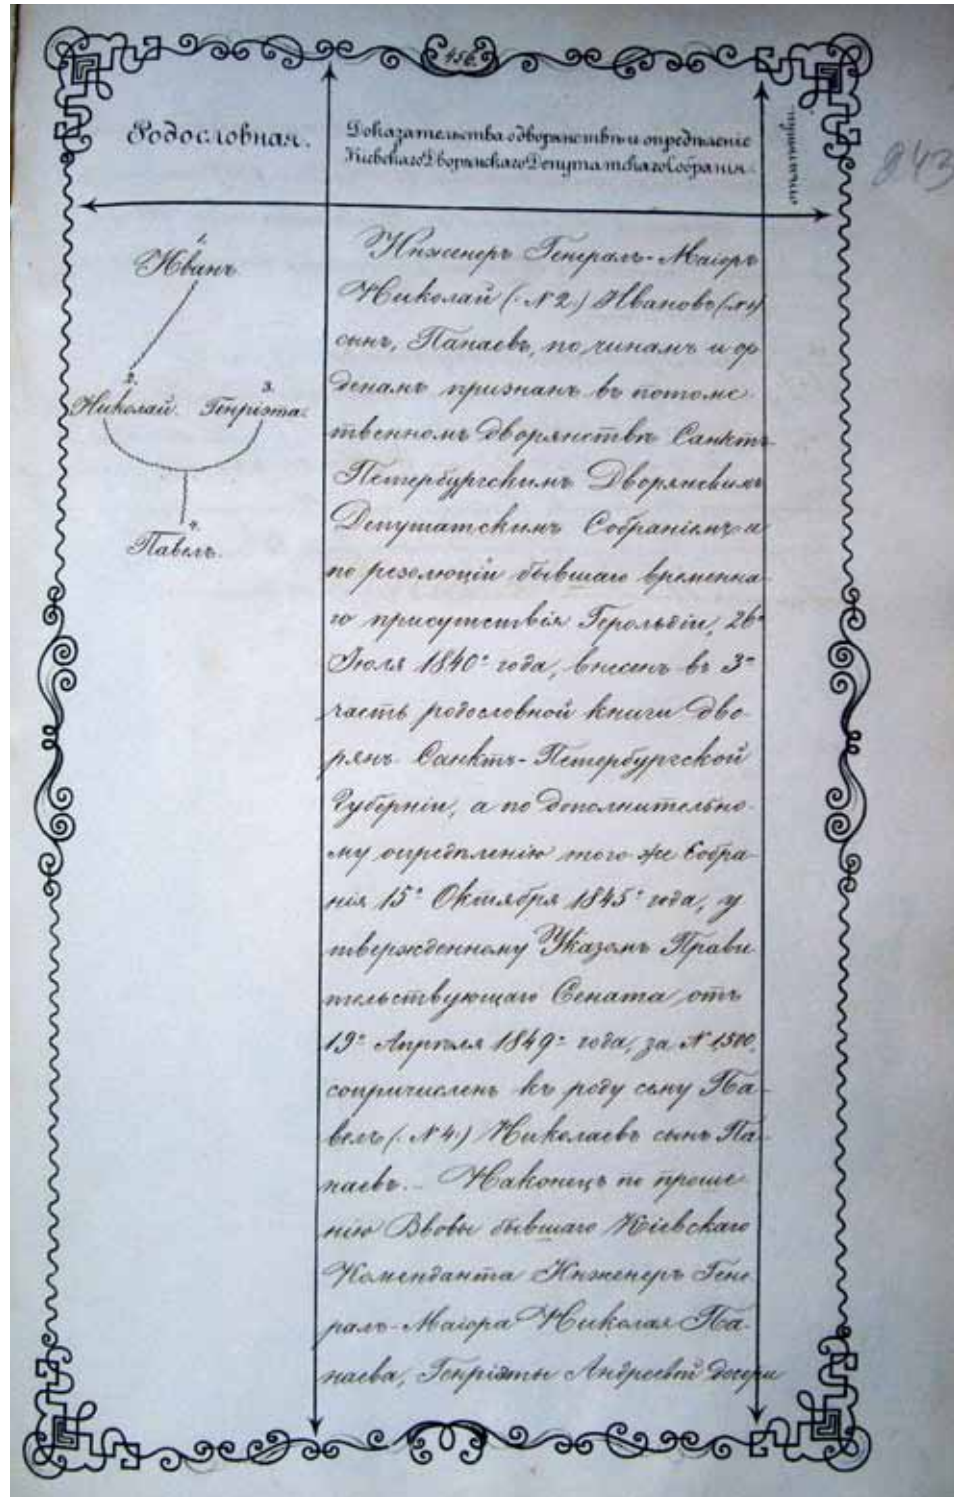 456.
243
Родословная.
Доказательства о дворянствѣ и опредѣленіе
Кіевскаго Дворянскаго Депутатскаго Собранія.
отмѣтки.
1.
Иванъ.
2.
Николай.
3.
Генріэта.
4.
Павелъ.
Инженеръ Генералъ-Маіоръ
Николай (№ 2.) Ивановъ (№ 1)
сынъ, Панаевъ, по чинамъ и ор
денамъ признанъ въ потомс
твенномъ дворянствѣ Санктъ
Петербургскимъ Дворянскимъ
Депутатскимъ Собраніемъ и
по резолюціи бывшаго временна-
го присутствія Герольдіи, 26го
Іюля 1840го года, внесенъ въ 3ю
часть родословной книги дво-
рянъ Санктъ-Петербургской
Губерніи, а по дополнительно-
му опредѣленію того же Собра-
нія 15го Октября 1845го года, у
твержденному Указомъ Прави
тельствующаго Сената, отъ
19го Апрѣля 1849го года, за № 1,500,
сопричисленъ къ роду сему Па-
велъ (№ 4.) Николаевъ сынъ Па-
наевъ. - Наконецъ по проше-
нію Вдовы бывшаго Кіевскаго
Коменданта Инженеръ Гене
ралъ-Маіора Николая Па-
наева, Генріэты Андреевой дочери